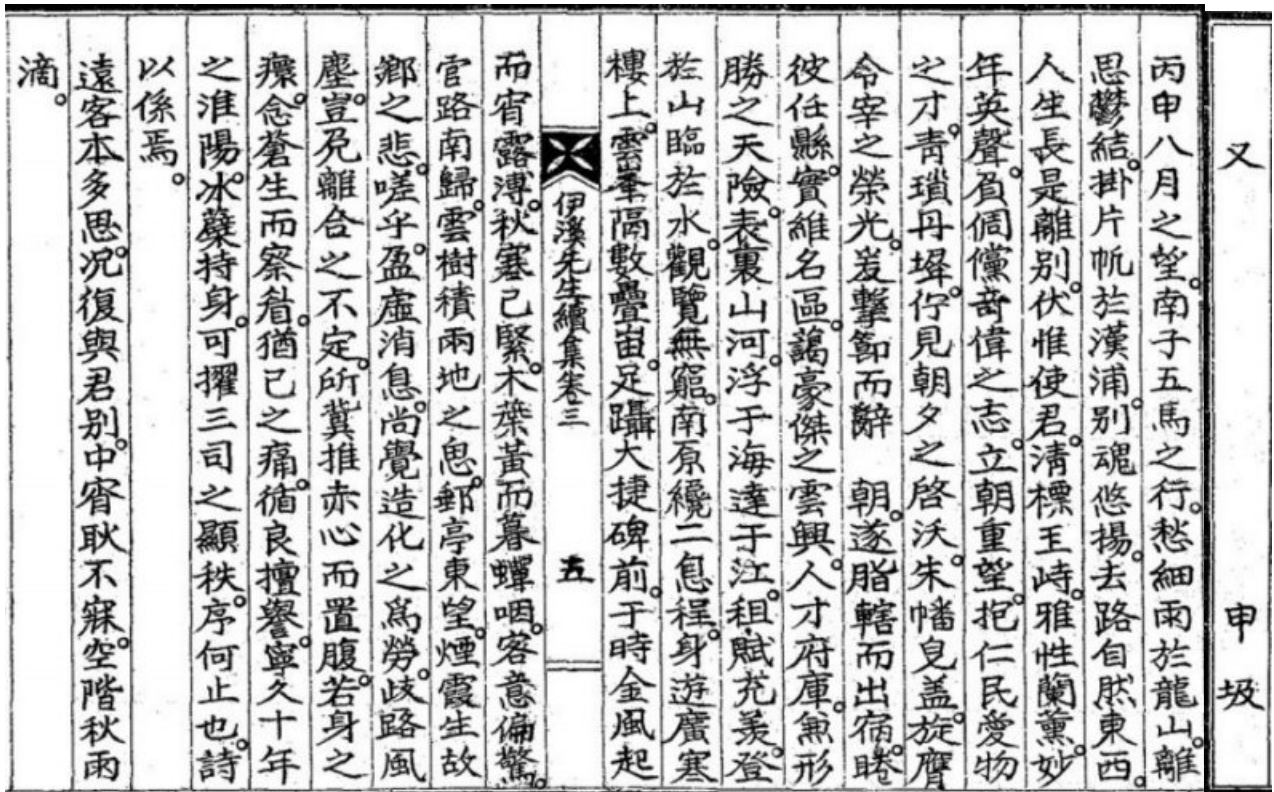 又 申圾
丙申八月之望。南子五馬之行。愁細雨於龍山。離
思鬱結。掛片帆於漢浦。别魂悠揚。去路自然東西。
人生長是離别。伏惟使君。淸標玉峙。雅性蘭薰。妙
年英聲。負倜儻奇偉之志。立朝重望。抱仁民愛物
之才。靑瑣丹墀。佇見朝夕之啓沃。朱幡皂盖。旋膺
令宰之榮光。爰擊節而辭 朝。遂脂轄而出宿。睠
彼任縣。實維名區。藹豪傑之雲興。人才府庫。無形
勝之天險。表裏山河。浮于海達于江。租賦充羡。登
於山臨於水。觀覽無窮。南原纔二息程。身遊廣寒
樓上。雲峯隔數疊宙。足躡大捷碑前。于時金風起
伊溪先生續集卷三 五
而宵露漙。秋寒已緊。木葉黃而暮蟬咽。客意偏驚。
官路南歸。雲樹積兩地之思。郵亭東望。煙霞生故
鄕之悲。嗟乎。盈虛消息。尙覺造化之爲勞。歧路風
塵。豈免離合之不定。所冀推赤心而置腹。若身之
癏。念蒼生而察眉。猶己之痛。循良擅譽。寧久十年
之淮陽。氷蘗持身。可擢三司之顯秩。序何止也。詩
以係焉。
遠客本多思。况復與君别。中宵耿不寐。空階秋雨
滴。